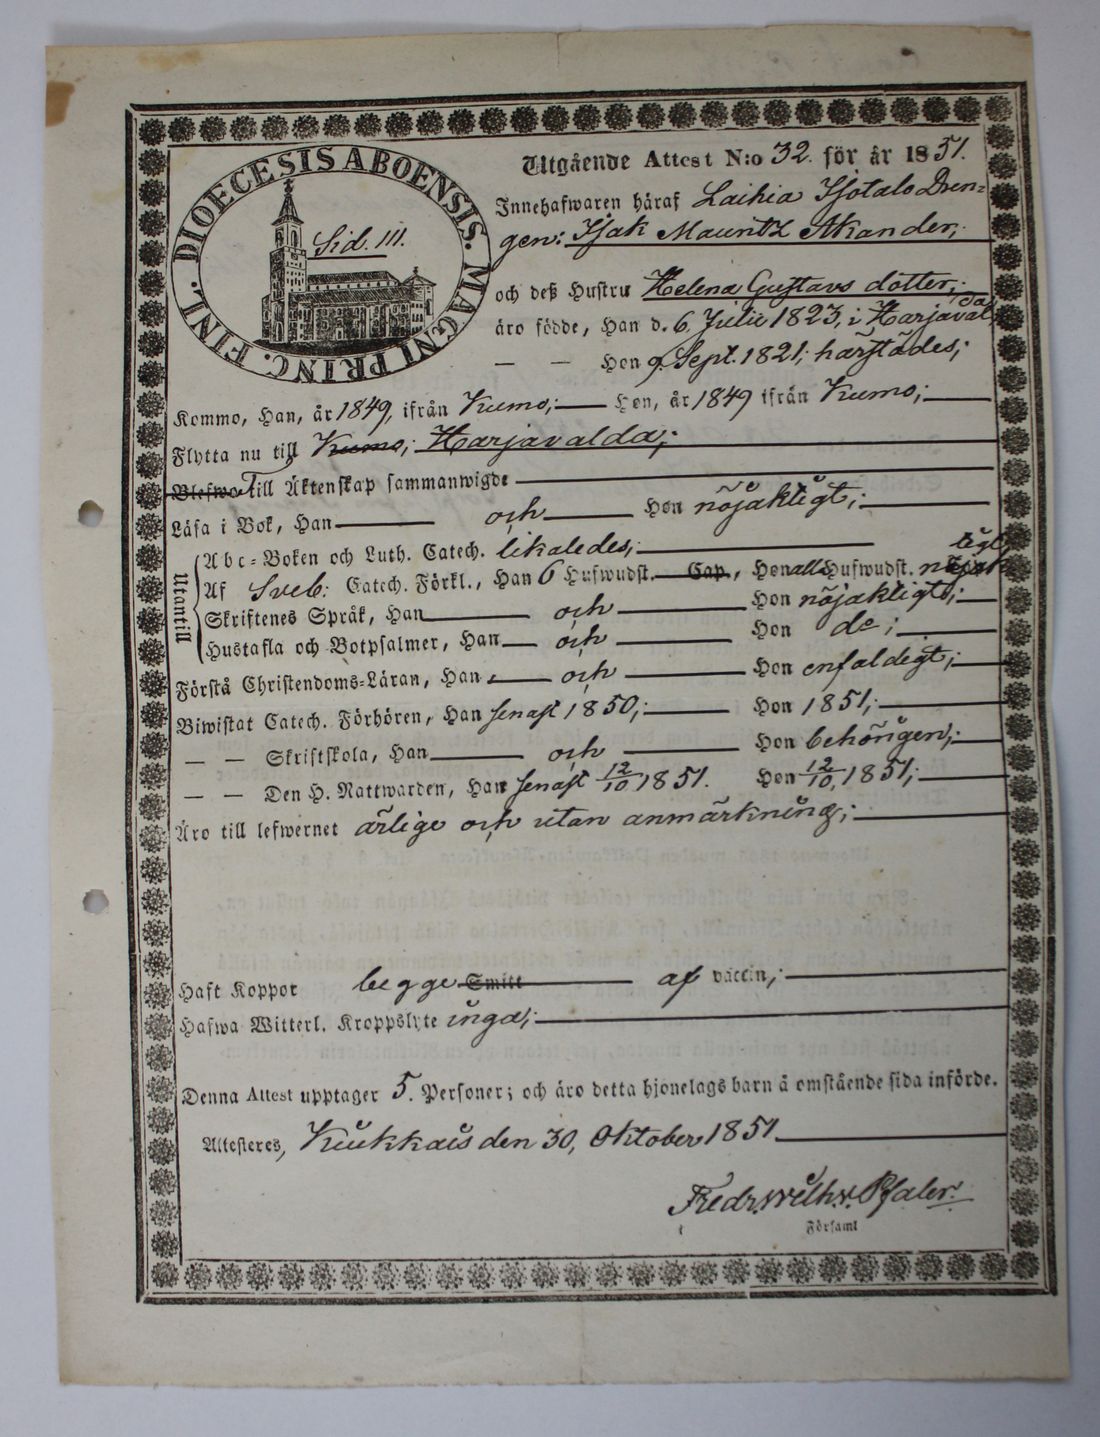 DIOECESIS ABOENSIS. MAGNI PRINC. FINL.
Sid. 111.
Utgående Attest N:o 32. för år 1851.
Innehafwaren häraf Laihia Isotalo Dren=
gen: Isak Mauritz Akander,
och deß Hustru Helena Gustavs dotter,
äro födde, Han d. 6 Julii 1823, i Harjavalda
— — Hon 9 Sept. 1821; härstädes;
Kommo, Han, år 1849, ifrån Kumo; Hon, år 1849 ifrån Kumo;
Flytta nu till Kumo; Harjavalda;
Blefwo Till Äktenskap sammanwigde
Läsa i Bok, Han och Hon nöjaktigt;
Utantill
Abc=Boken och Luth. Catech. likaledes;
Af Sveb: Catech. Förkl., Han 6 Hufwudst. Cap, Hon all Hufwudst. nöjaktigt
Skriftenes Språk, Han och Hon nöjaktigt;
Hustafla och Botpsalmer, Han och Hon do;
Förstå Christendoms=Läran, Han och Hon enfaldigt;
Biwistat Catech. Förhören, Han senast 1850; Hon 1851;
— — Skriftskola, Han och Hon behörigen;
— — Den H. Nattwarden, Han senast 12/10 1851. Hon 12/10, 1851;
Äro till lefwernet ärlige och utan anmärkning;
Haft Koppor begge Smitt af vaccin;
Hafwa Witterl. Kroppslyte inga;
Denna Attest upptager 5. Personer; och äro detta hjonelags barn å omstående sida införde.
Attesteres, Kiukkais den 30, Oktober 1851
Fredr. Wilh. v. Pfaler.
Församl